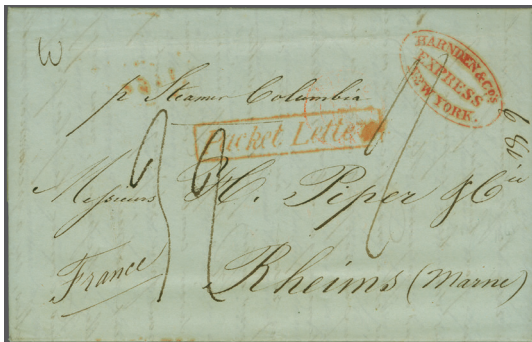 HARNDEN & Co's
EXPRESS
NEW YORK.
p Steamer Columbia
Packet Letter
Messieurs H. Piper & Cie
Rheims (Marne)
France